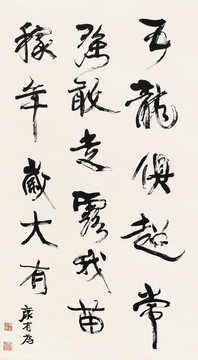 五龍俱起常
強敢走露我苗
稼年歲大有
康有為